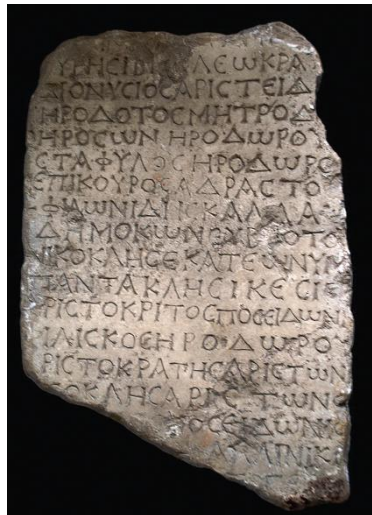 ΥΡΗΣΙΔ ΚΛΕΩΚΡΑ
ΔΙΟΝΥΣΙΟΣΑΡΙΣΤΕΙΔ
ΗΡΟΔΟΤΟΣΜΗΤΡΟΔ
ΗΡΟΣΩΝ ΗΡΟΔΩΡΟ
ΣΤΑΦΥΛΟΣΗΡΟΔΩΡΟ
ΕΠΙΚΟΥΡΟΣΑΔΡΑΣΤΟ
ΦΙΛΩΝΙΔΗΣΚΑΛΛΙΑ
ΔΗΜΟΚΩΝΣΥΒΡΟΤΟ
ΝΙΚΟΚΛΗΣΕΚΑΤΕΩΝΥΜ
ΠΑΝΤΑΚΛΗΣΙΚΕΣΙ
ΡΙΣΤΟΚΡΙΤΟΣΠΟΣΕΙΔΩΝ
ΙΛΙΣΚΟΣΗΡΟΔΩΡΟ
ΡΙΣΤΟΚΡΑΤΗΣΑΡΙΣΤΩΝ
ΟΚΛΗΣΑΡΙΣΤΩΝΟ
ΟΣΕΙΔΩΝΙΟ
ΛΛΙΝΙΚ